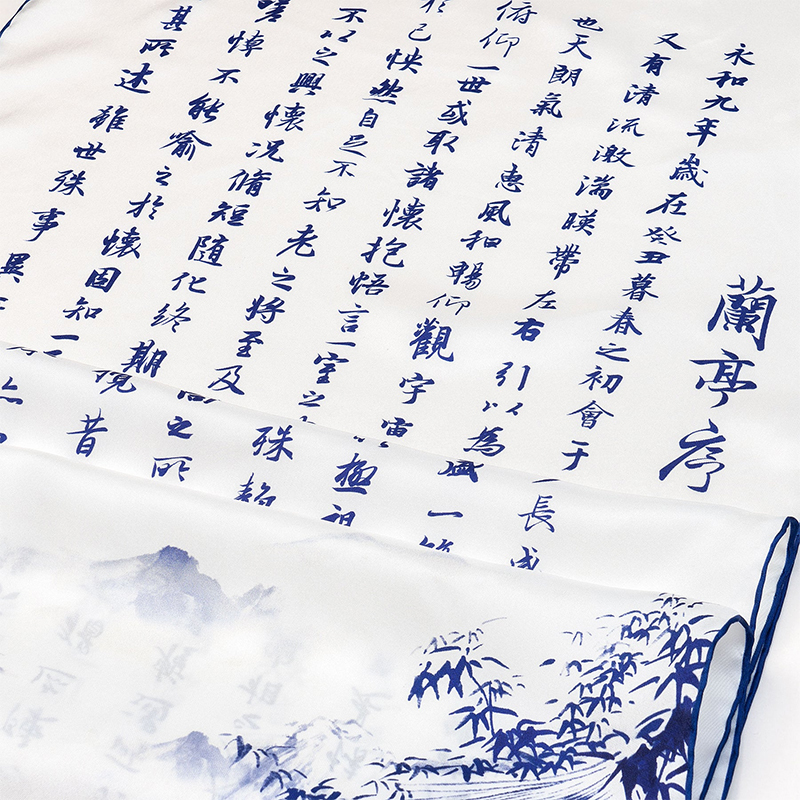 蘭亭序
永和九年歲在癸丑暮春之初會于
又有清流激湍暎帶左右引以為
盛一
長
也天朗氣清惠風和暢仰觀宇宙
極
俯仰一世或取諸懷抱悟言一室之
殊
於己快然自足不知老之將至及
之所
不以之興懷況脩短隨化終期
昔
嗟悼不能喻之於懷固知一
其所述雖世殊事異